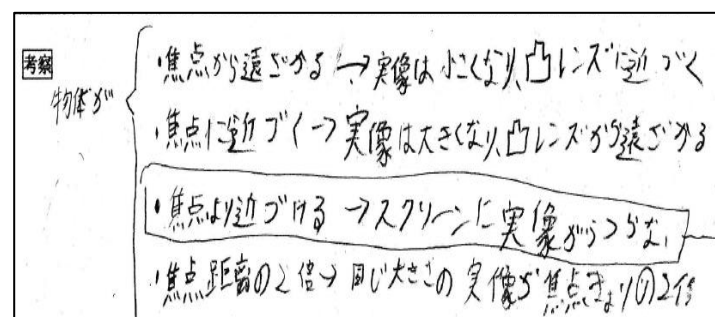 考察
物体が
・焦点から遠ざかる→実像は小さくなり、凸レンズに近づく
・焦点に近づく→実像は大きくなり、凸レンズから遠ざかる
・焦点より近づける→スクリーンに実像がうつらない
・焦点距離の2倍→同じ大きさの実像が焦点きょりの2倍